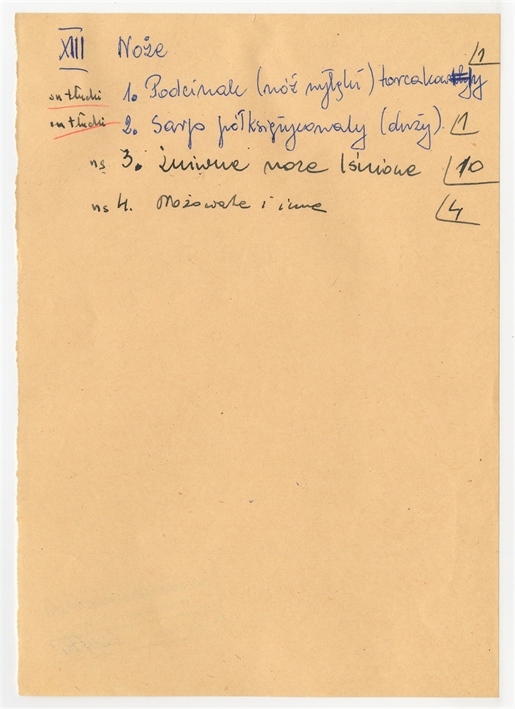 XIII Noże
1. Podcinak (nóż wylęski) torcakowaty 1
2. Sarp półksiężycowaty (duży). 1
ns 3. Żniwne noże lśniące 10
ns 4. Nożowate i inne 4